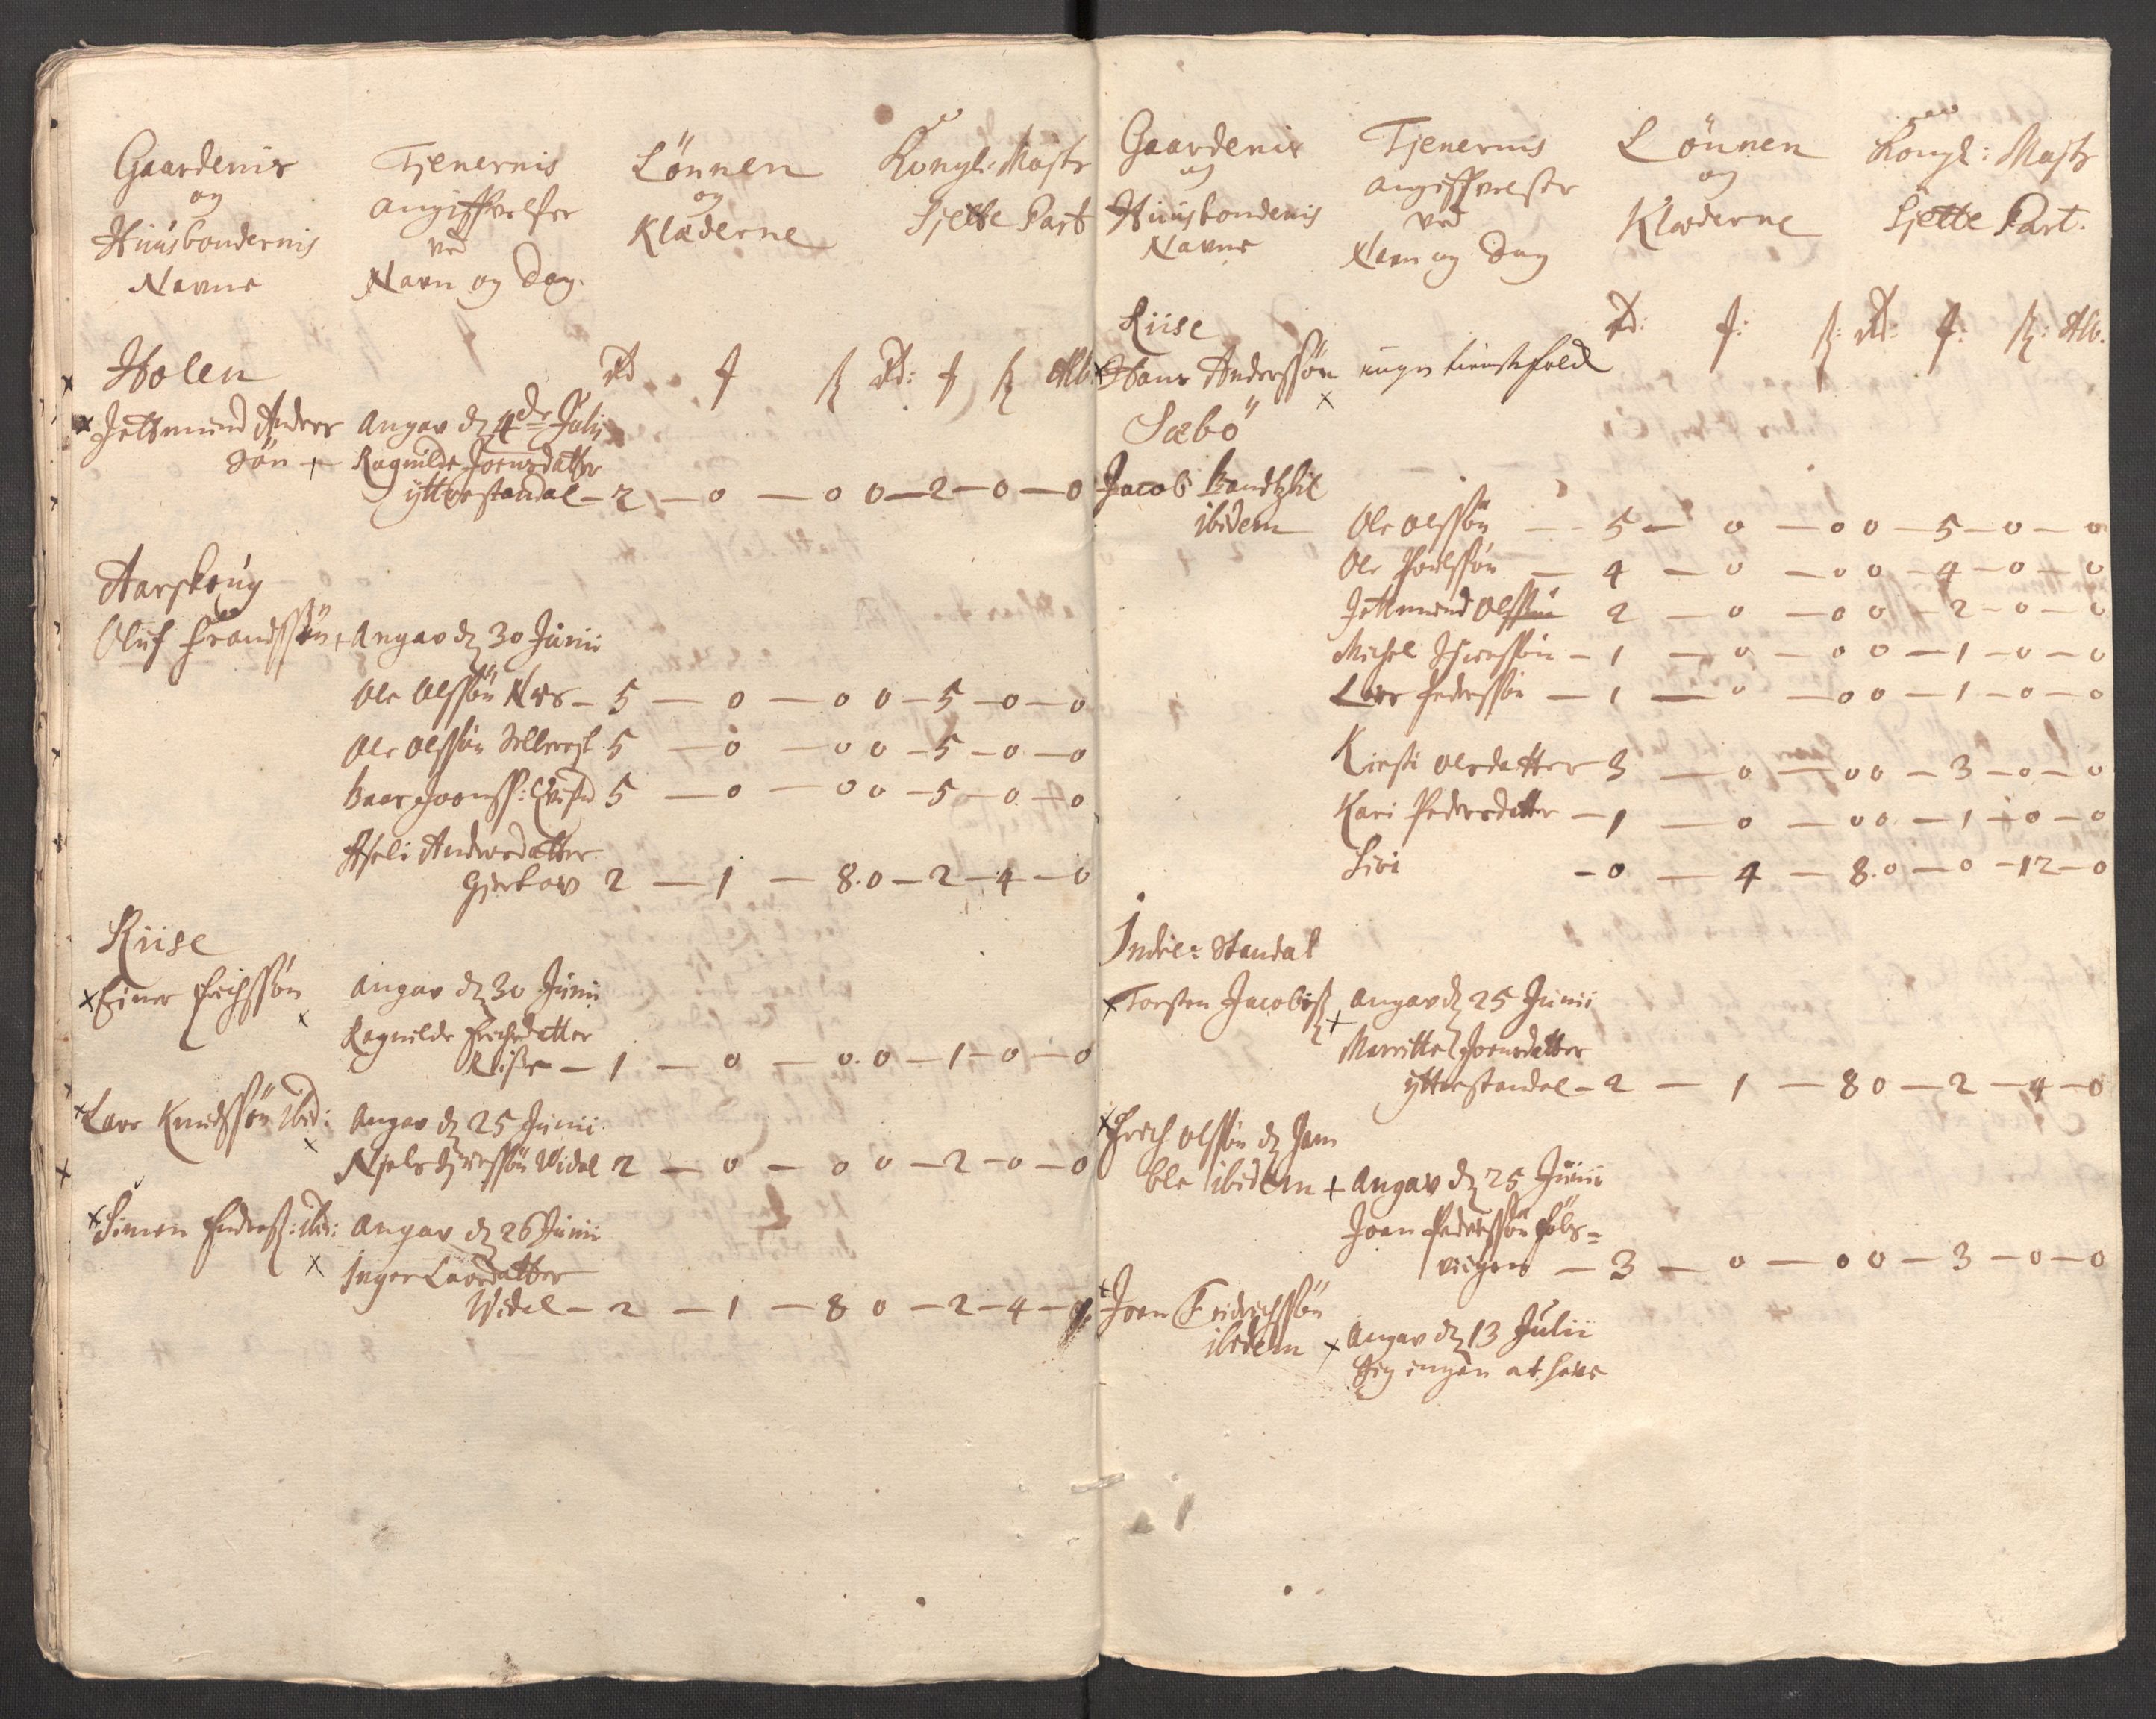 Gaardenis
og
Huusbondernis
Navne
Tjenernis
angiffvelser
ved
Navn og Dag.
Lönnen
og
Klæderne
Kongl: Majts
Sjette Part
Holen
Rd f ß Rd: f ß Alb
Jettmund Anders
Sön + Angav d 4de Julij
Ragnilde Joensdatter
ytterstandal – 2 – 0 – 0 0 – 2 – 0 – 0
Aarskoug
Oluf + Angav d 30 Junii
Ole Olssön – 5 – 0 – 0 0 – 5 – 0 – 0
Ole Olssön 5 – 0 – 0 0 – 5 – 0 – 0
5 – 0 – 0 0 – 5 – 0 – 0
Andersdatter
2 – 1 – 8. 0 – 2 – 4 – 0
Riise
x Einer Erichssön x Angav d 30 Junii
Ragnilde Erichsdatter
Riise – 1 – 0 – 0. 0 – 1 – 0 – 0
x Lars Knudssön ibid: x Angav d 25 Junii
Videl 2 – 0 – 0 0 – 2 – 0 – 0
x Simen ibid: x Angav d 26 Junii
Inger Larsdatter
Videl – 2 – 1 – 8 0 – 2 – 4 –
Gaardenis
og
Huusbondenis
Navne
Tjenernis
angiffvelser
ved
Navn og Dag
Lönnen
og
Klæderne
Kongl: Majts
Sjette Part.
Riise
Rd: f: ß: Rd: f: ß: Alb.
x Hans Anderssön x ingen tienistefolck
Sæbö
Jacob
ibidem Ole Olssön – 5 – 0 – 0 0 – 5 – 0 – 0
Ole Poulssön – 4 – 0 – 0 0 – 4 – 0 – 0
Jettmund Olssön 2 – 0 – 0 0 – 2 – 0 – 0
Michel – 1 – 0 – 0 0 – 1 – 0 – 0
Lars Pederssön – 1 – 0 – 0 0 – 1 – 0 – 0
Kirsti Olsdatter 3 – 0 – 0 0 – 3 – 0 – 0
Kari Pedersdatter – 1 – 0 – 0 0 – 1 – 0 – 0
Siri – 0 – 4 – 8. 0 – 0 – 12 – 0
Indre: Standal
x Torsten Jacobsß + Angav d 25 Junii
Marritte Joensdatter
ytterstandal – 2 – 1 – 8 0 – 2 – 4 – 0
x Erich Olssön d Gam
ble ibidem + Angav d 25 Junii
Joen Pederssön
– 3 – 0 – 0 0 – 3 – 0 – 0
x Joen Fridrichssön
ibidem x Angav d 13 Julii
Sig ingen at have